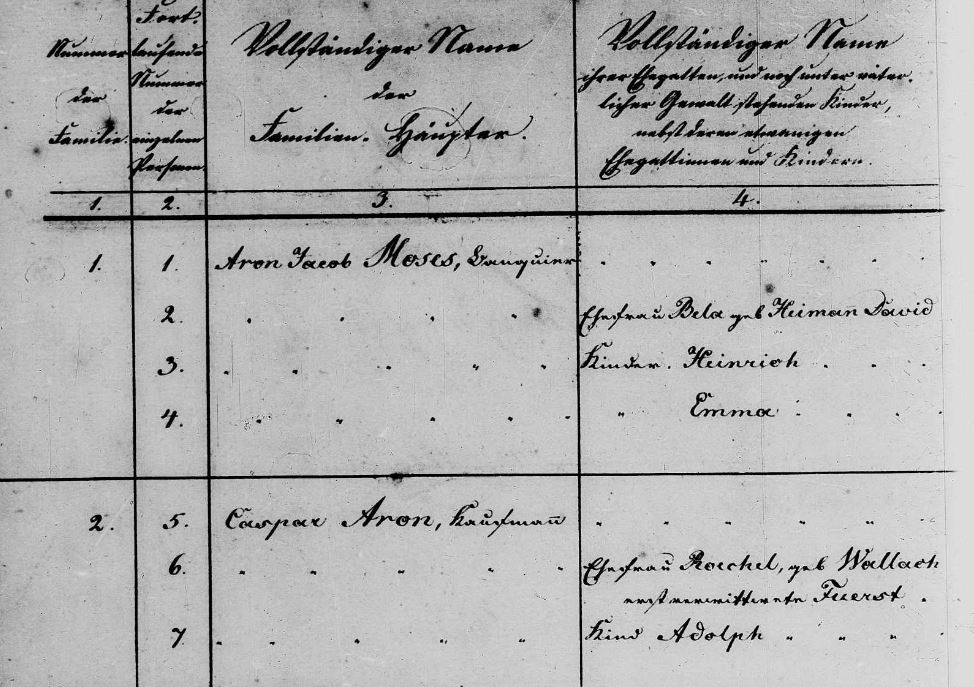 Nummer
der
Familie.
Fort-
laufende
Nummer
der
einzelnen
Personen.
Vollständiger Name
der
Familien-Häupter.
Vollständiger Name
ihrer Ehegatten, und noch unter väter-
licher Gewalt stehenden Kinder,
nebst deren etwanigen
Ehegattinnen und Kindern.
1. 2. 3. 4.
1. 1. Aron Jacob Moses, Banquier
2. Ehefrau Bela geb Heiman̄ David
3. Kinder. Heinrich
4. " Emma
2. 5. Caspar Aron, Kaufman̄
6. Ehefrau Roechel, geb Wallach
erst verwittwete Fuerst.
7. Kind Adolph